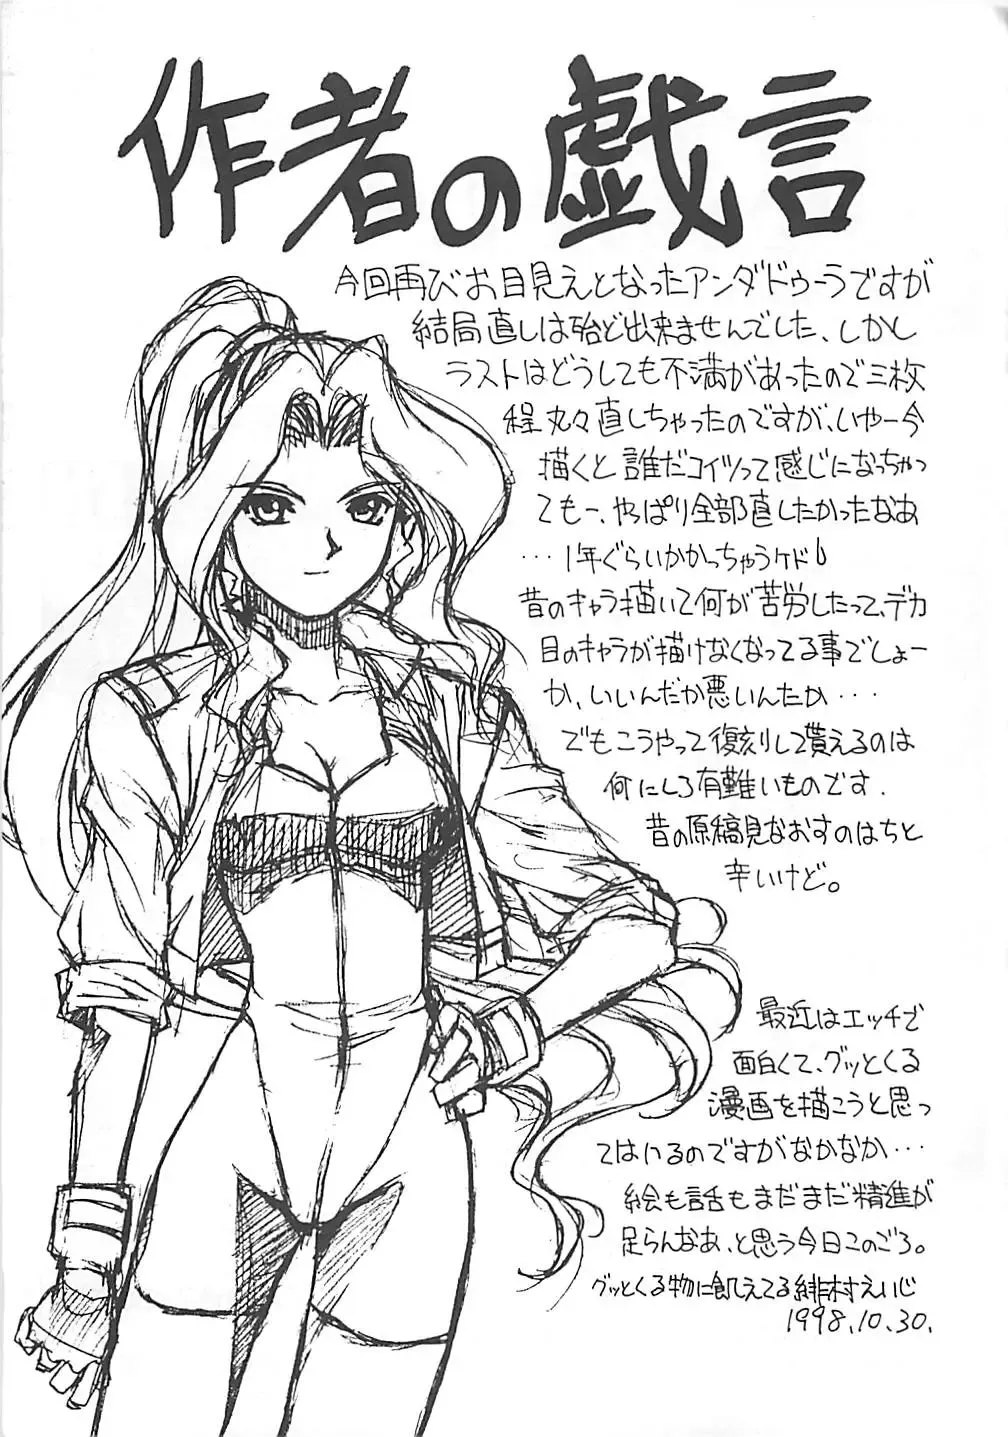 作者の戯言
今回再びお目見えとなったアンダドゥーラですが
結局直しは殆ど出来ませんでした、しかし
ラストはどうしても不満があったので三枚
程丸々直しちゃったのですが、いやー今
描くと誰だコイツって感じになっちゃっ
てもー、やっぱり全部直したかったなあ
・・・1年ぐらいかかっちゃうケド
昔のキャラ描いて何が苦労したって、デカ
目のキャラが描けなくなってる事でしょー
か、いいんだか悪いんたか・・・
でもこうやって復刻して貰えるのは
何にしろ有難いものです.
昔の原稿見なおすのはちと
辛いけど。
最近はエッチで
面白くて、グッとくる
漫画を描こうと思っ
てはいるのですがなかなか・・・
絵も話もまだまだ精進が
足らんなあ、と思う今日このごろ。
グッとくる物に飢えてる緋村えいじ
1998.10.30.